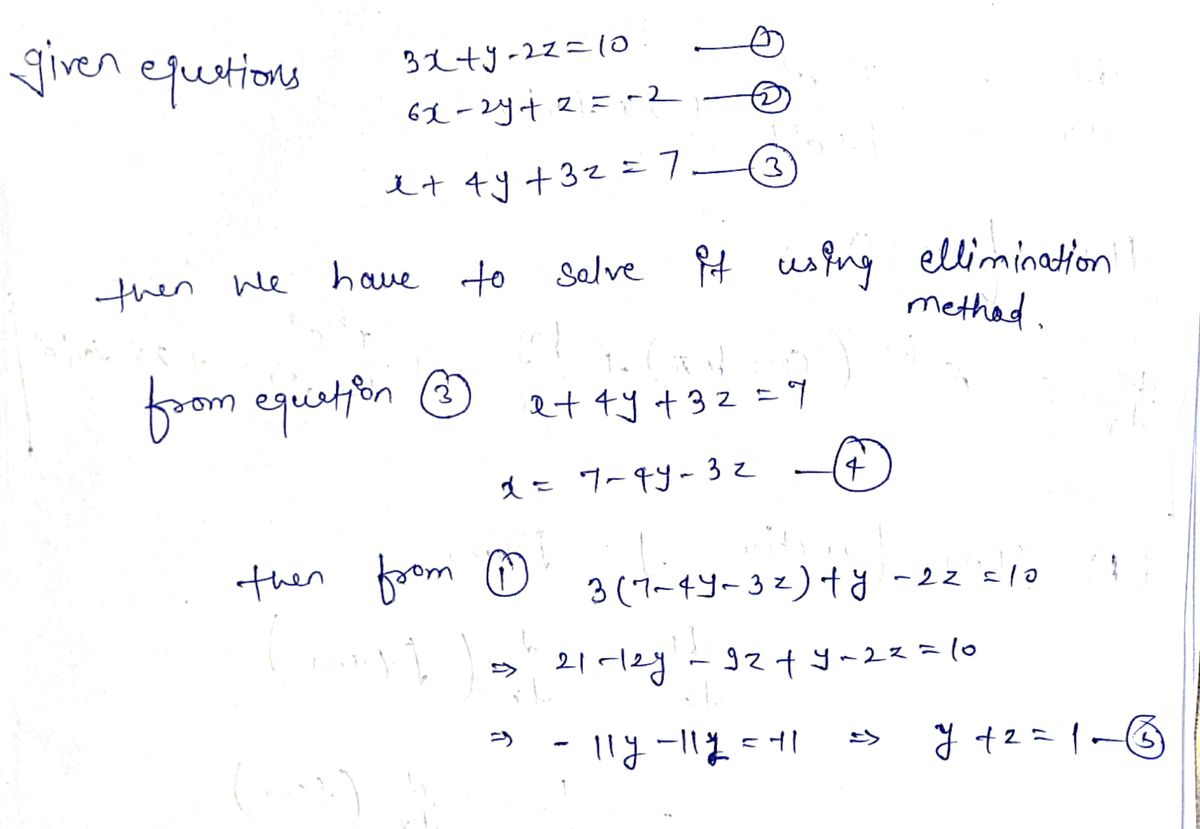 given equetions 3x+y-2z=10 —①
6x-2y+z=-2 —②
x+4y+3z=7 —③
then we have to solve it using ellimination
method.
from equetion ③ x+4y+3z=7
x=7-4y-3z —④
then from ① 3(7-4y-3z)+y-2z=10
⇒ 21-12y-9z+y-2z=10
⇒ -11y-11y=-11 ⇒ y+z=1—⑤